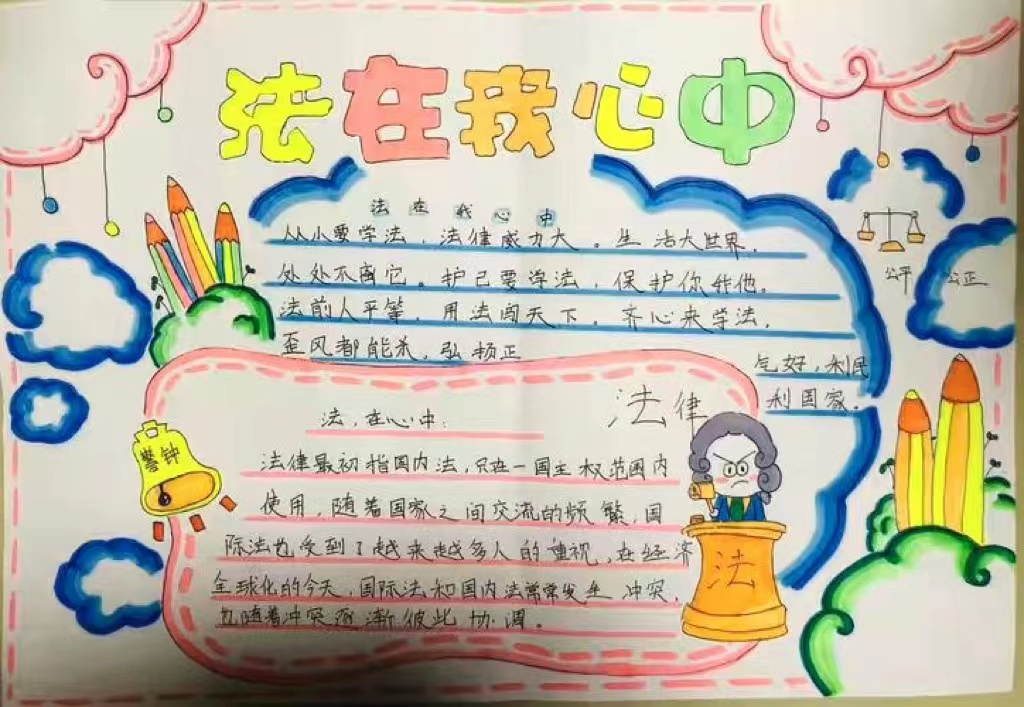 法在我心中
法在我心中
从小要学法，法律威力大。生活大世界，
处处不离它。护己要学法，保护你我他。
法前人平等，用法闯天下。齐心来学法，
歪风都能杀，弘杨正
气好，利民
利国家。
公平 公正
法律
法，在心中：
法律最初指国内法，只在一国主权范围内
使用，随着国家之间交流的频繁，国
际法也受到了越来越多人的重视，在经济
全球化的今天，国际法和国内法常常发生冲突，
也随着冲突逐渐彼此协调。
警钟
法